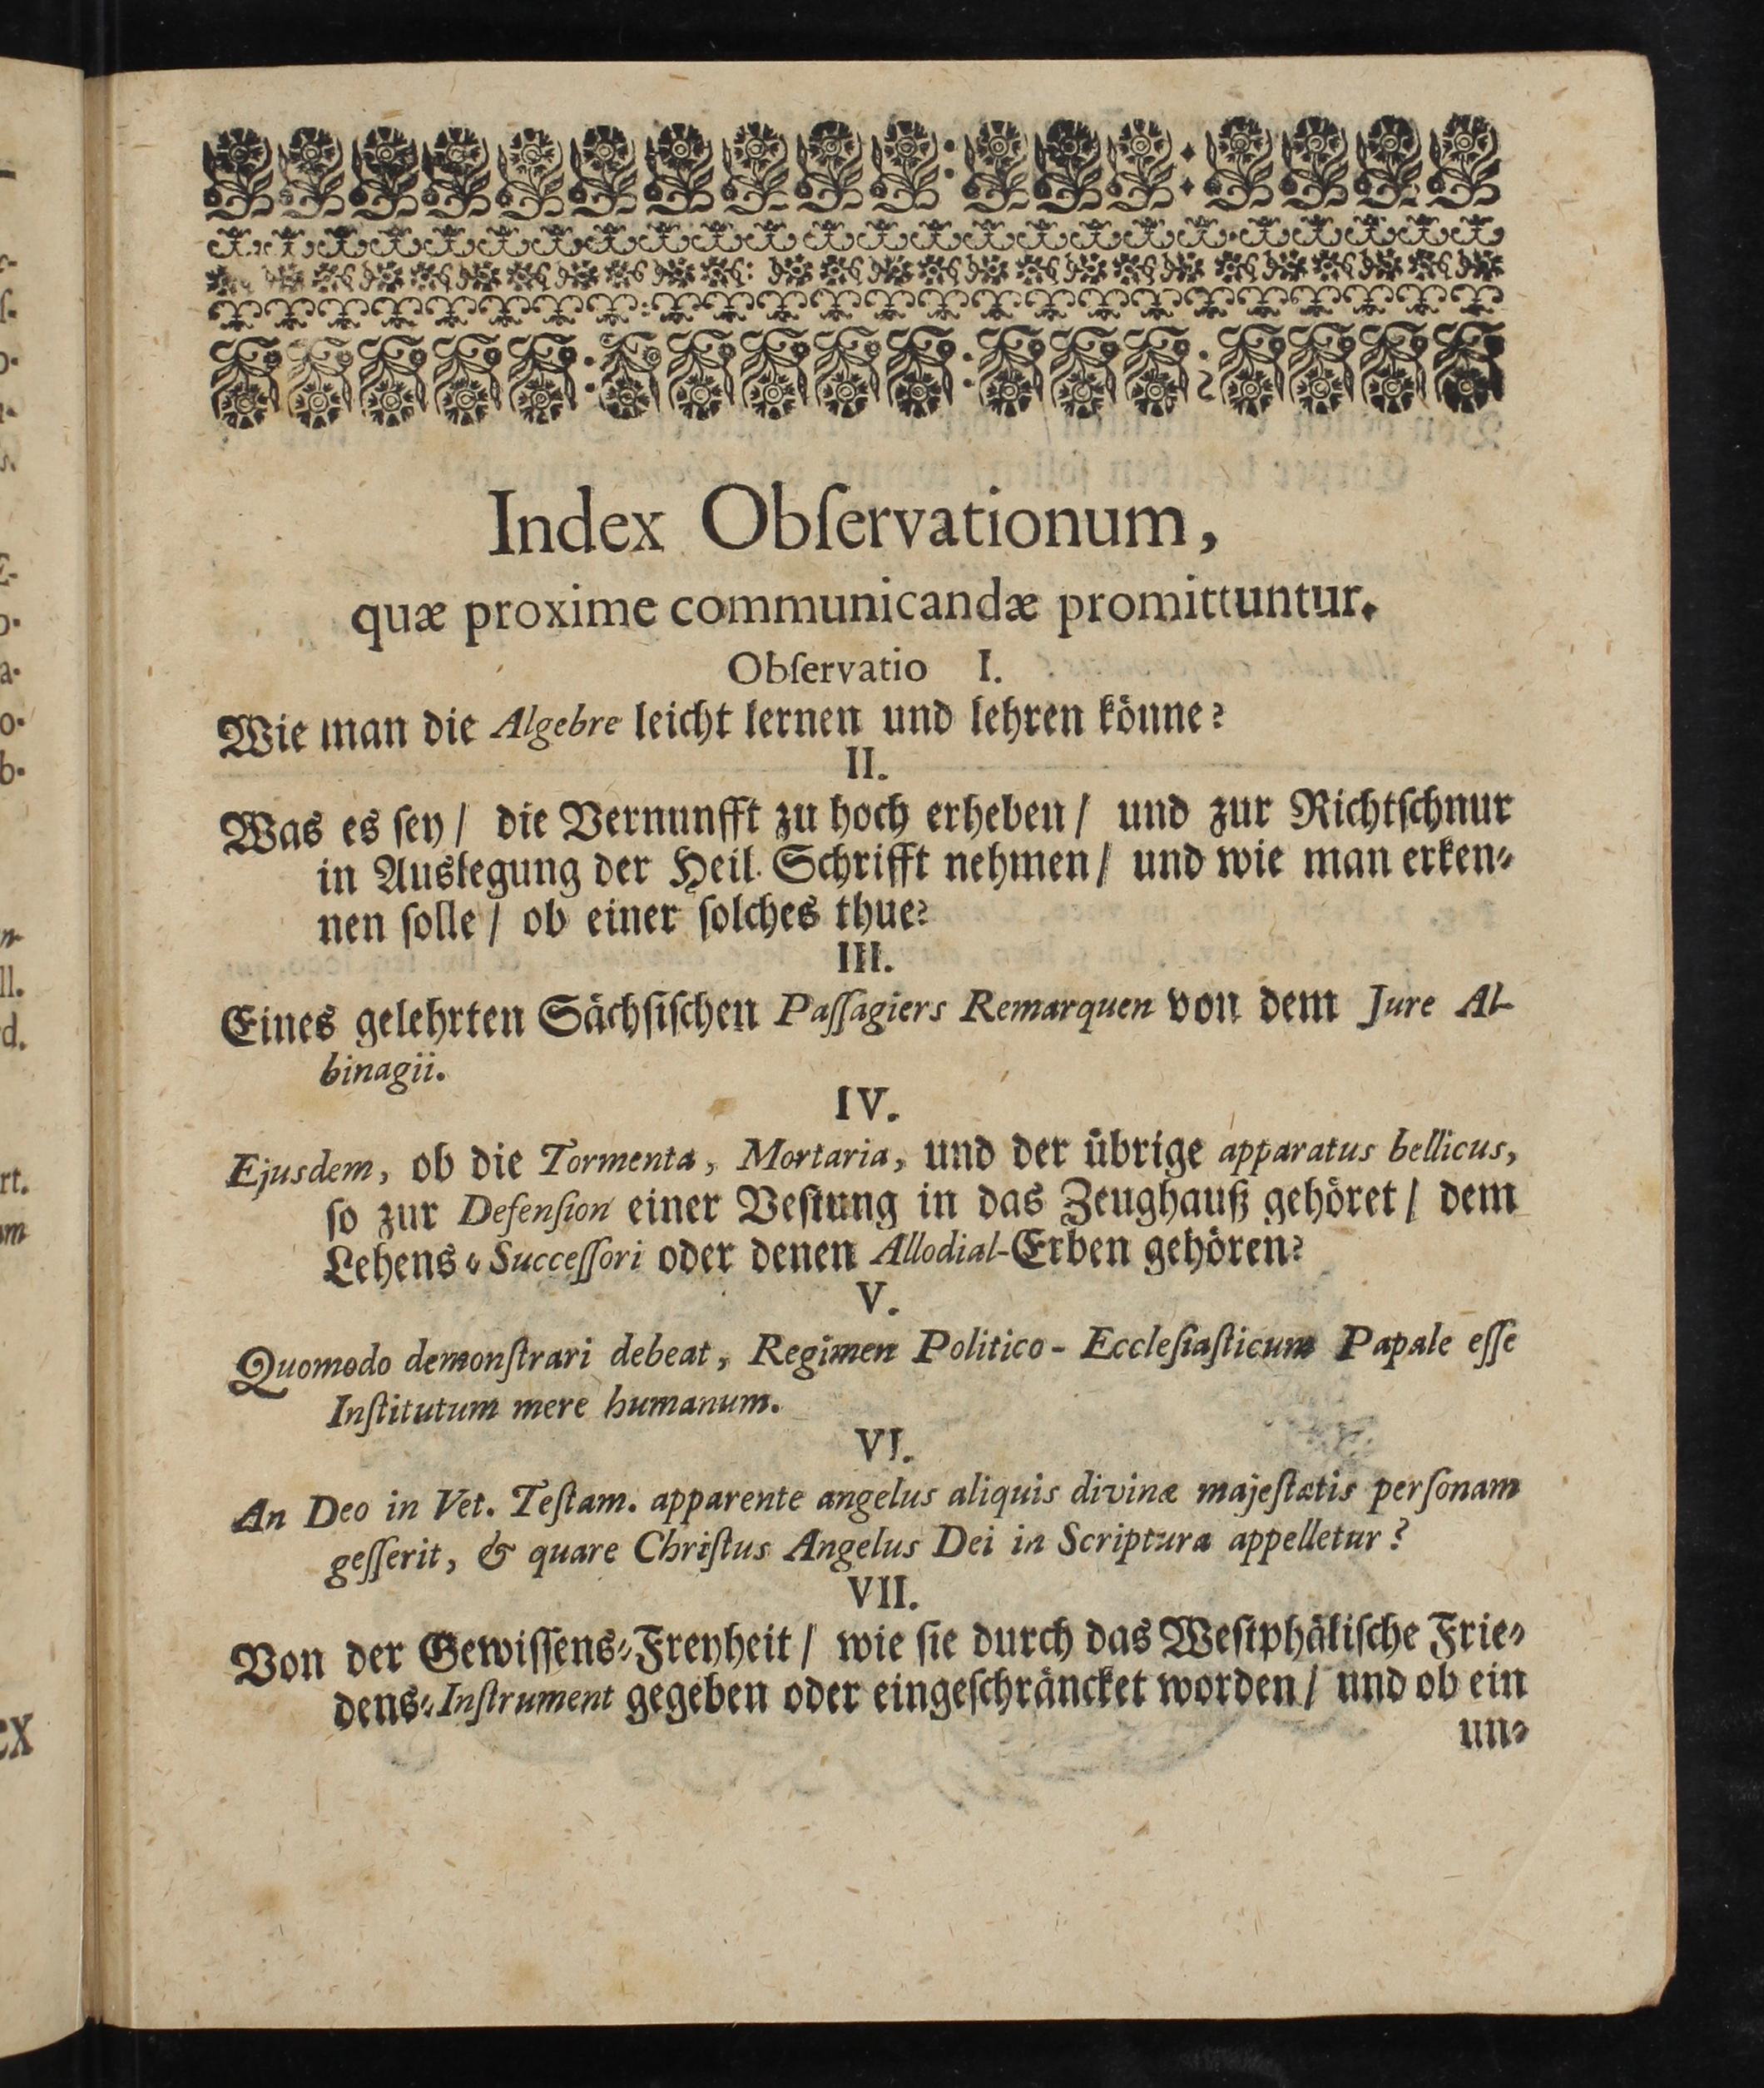 Index Obſervationum,
quæ proxime communicandæ promittuntur.
Obſervatio I.
Wie man die Algebre leicht lernen und lehren könne?
II.
Was es ſey / die Vernunfft zu hoch erheben / und zur Richtſchnur
in Auslegung der Heil. Schrifft nehmen / und wie man erken-
nen ſolle / ob einer ſolches thue?
III.
Eines gelehrten Sächſiſchen Paſſagiers Remarquen von dem Jure Al-
binagii.
IV.
Ejusdem, ob die Tormenta, Mortaria, und der übrige apparatus bellicus,
ſo zur Defenſion einer Veſtung in das Zeughauß gehöret / dem
Lehens-Succeſſori oder denen Allodial-Erben gehören?
V.
Quomodo demonſtrari debeat, Regimen Politico-Eccleſiaſticum Papale eſſe
Inſtitutum mere humanum.
VI.
An Deo in Vet. Teſtam. apparente angelus aliquis divinæ majeſtatis perſonam
geſſerit, & quare Chriſtus Angelus Dei in Scriptura appelletur?
VII.
Von der Gewiſſens-Freyheit / wie ſie durch das Weſtphäliſche Frie-
dens-Inſtrument gegeben oder eingeſchräncket worden / und ob ein
un-